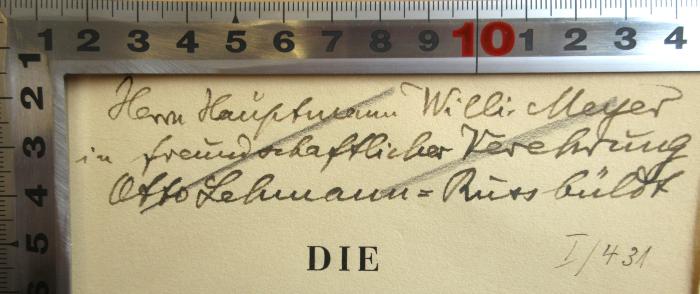 1 2 3 4 5 6 7 8 9 10 1 2 3 4
2
3
4
5
6
Herrn Hauptmann Willi Meyer
in freundschaftlicher Verehrung
Otto Lehmann=Russbüldt
DIE
I/431